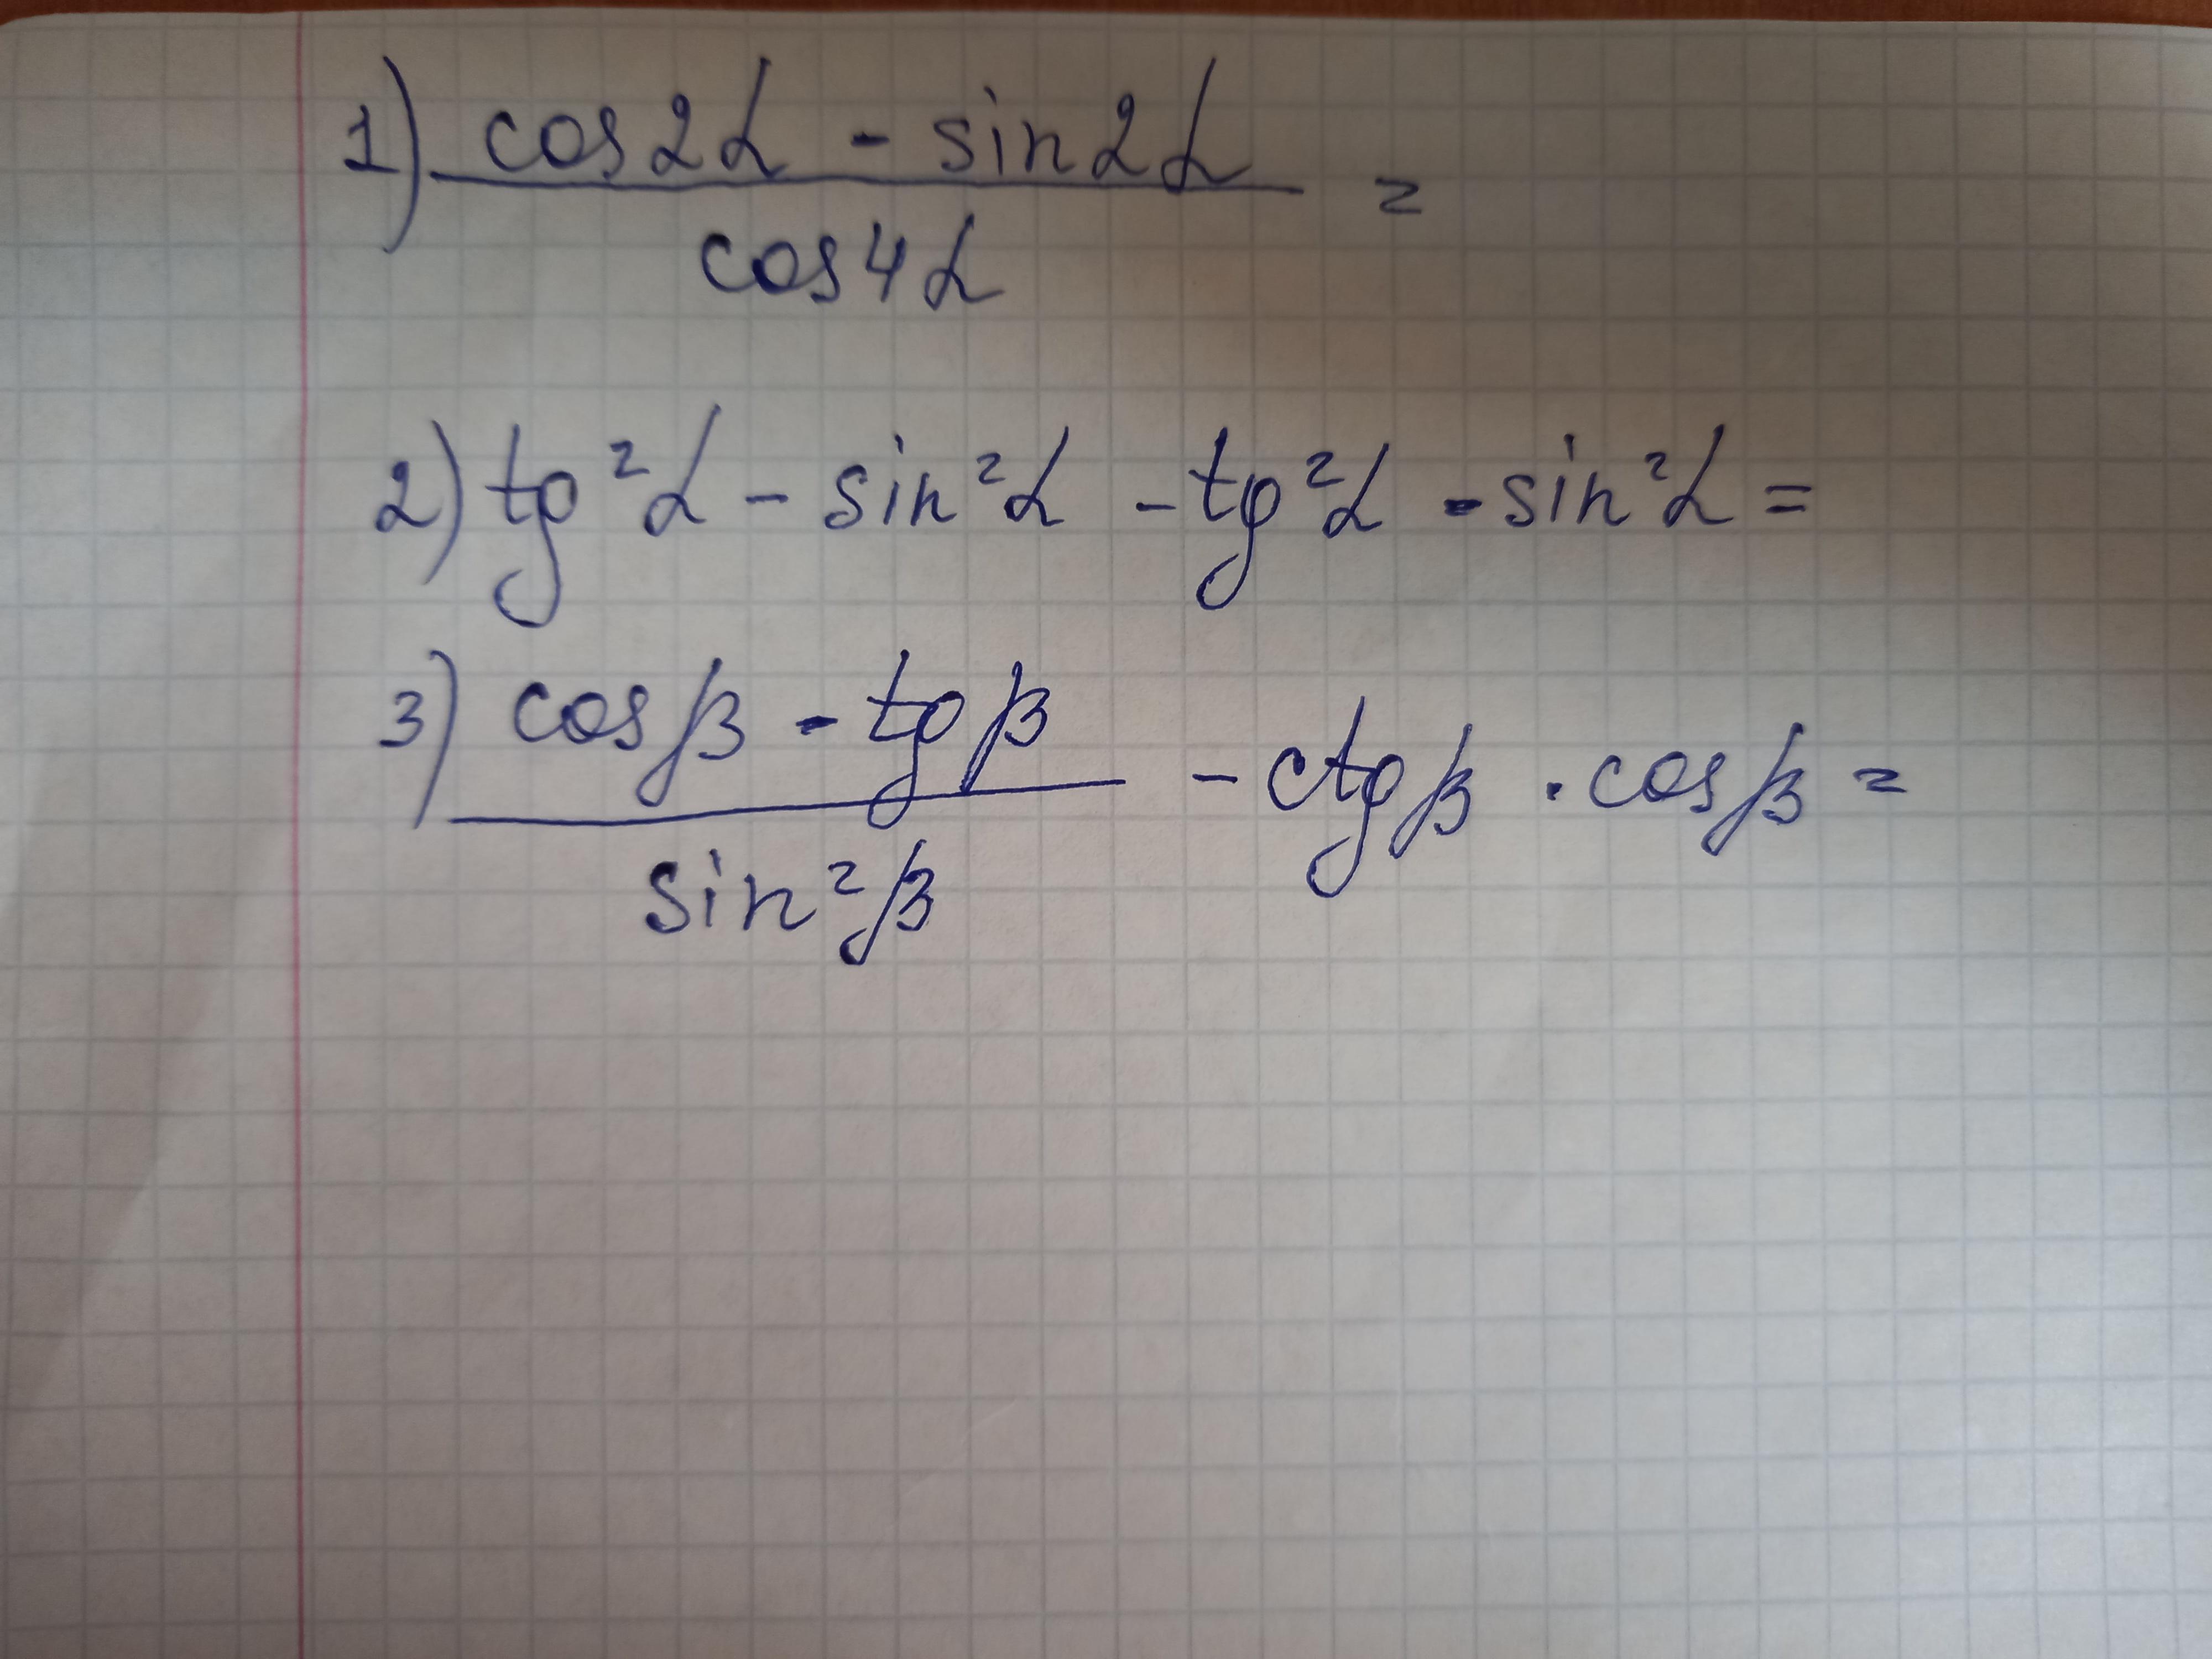 1) cos2α - sin2α =
cos4α
2) tg²α - sin²α - tg²α - sin²α =
3) cosβ - tgβ - ctgβ · cosβ =
sin²β